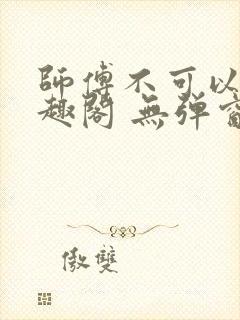 師傅不可以
趣閣 無彈
傲雙